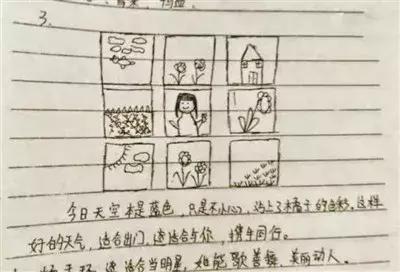 3.
今日天空本是蓝色,只是不小心,沾上了橘子的色彩。这样
好的天气,适合出门,还适合与你,携手同行。
还适合当明星,她能歌善舞,美丽动人,